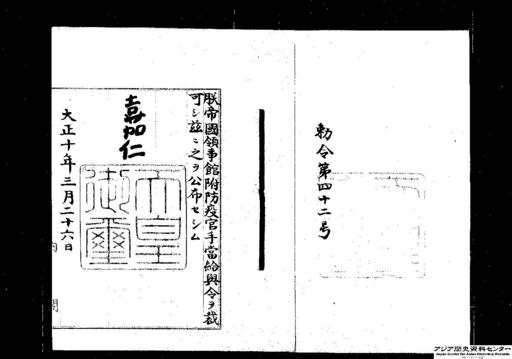 勅令第四十二号
朕帝國領事館附防疫官手當給與令ヲ裁
可シ玆ニ之ヲ公布セシム
嘉仁
天皇御璽
大正十年三月二十六日
内閣
アジア歴史資料センター
Japan Center for Asian Historical Records